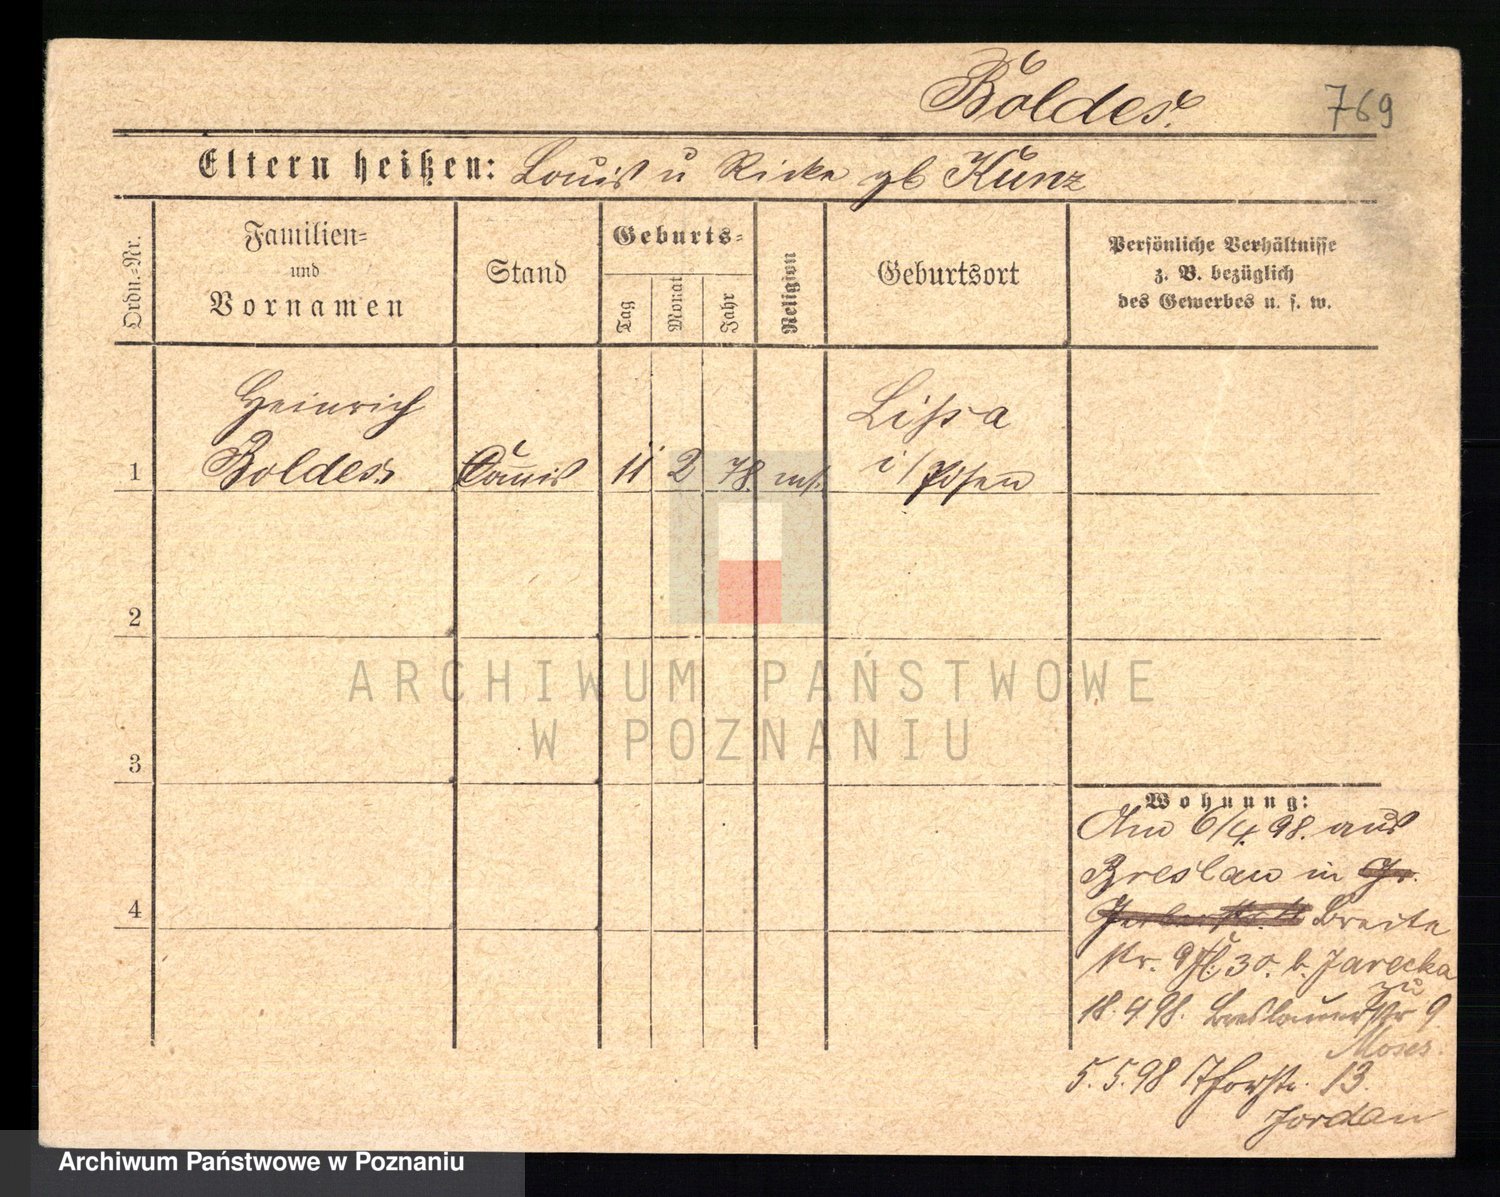 Boldes.
769
Eltern heißen: Louis u Ricke gb Kunz
Ordn.-Nr.
Familien-
und
Vornamen
Stand
Geburts-
Tag
Monat
Jahr
Religion
Geburtsort
Persönliche Verhältnisse
z. B. bezüglich
des Gewerbes u. s. w.
1
Heinrich
Boldes
Comis
11
2
78
mos.
Lissa
i/Posen
2
3
4
ARCHIWUM PAŃSTWOWE
W POZNANIU
Wohnung:
Am 6/4 98. aus
Breslau in Gr.
Breite
Str. 9 30. b. Jarecka
18.4 98. Breslauer Str 9
zu
Moses.
5. 5. 98 13.
Jordan
Archiwum Państwowe w Poznaniu